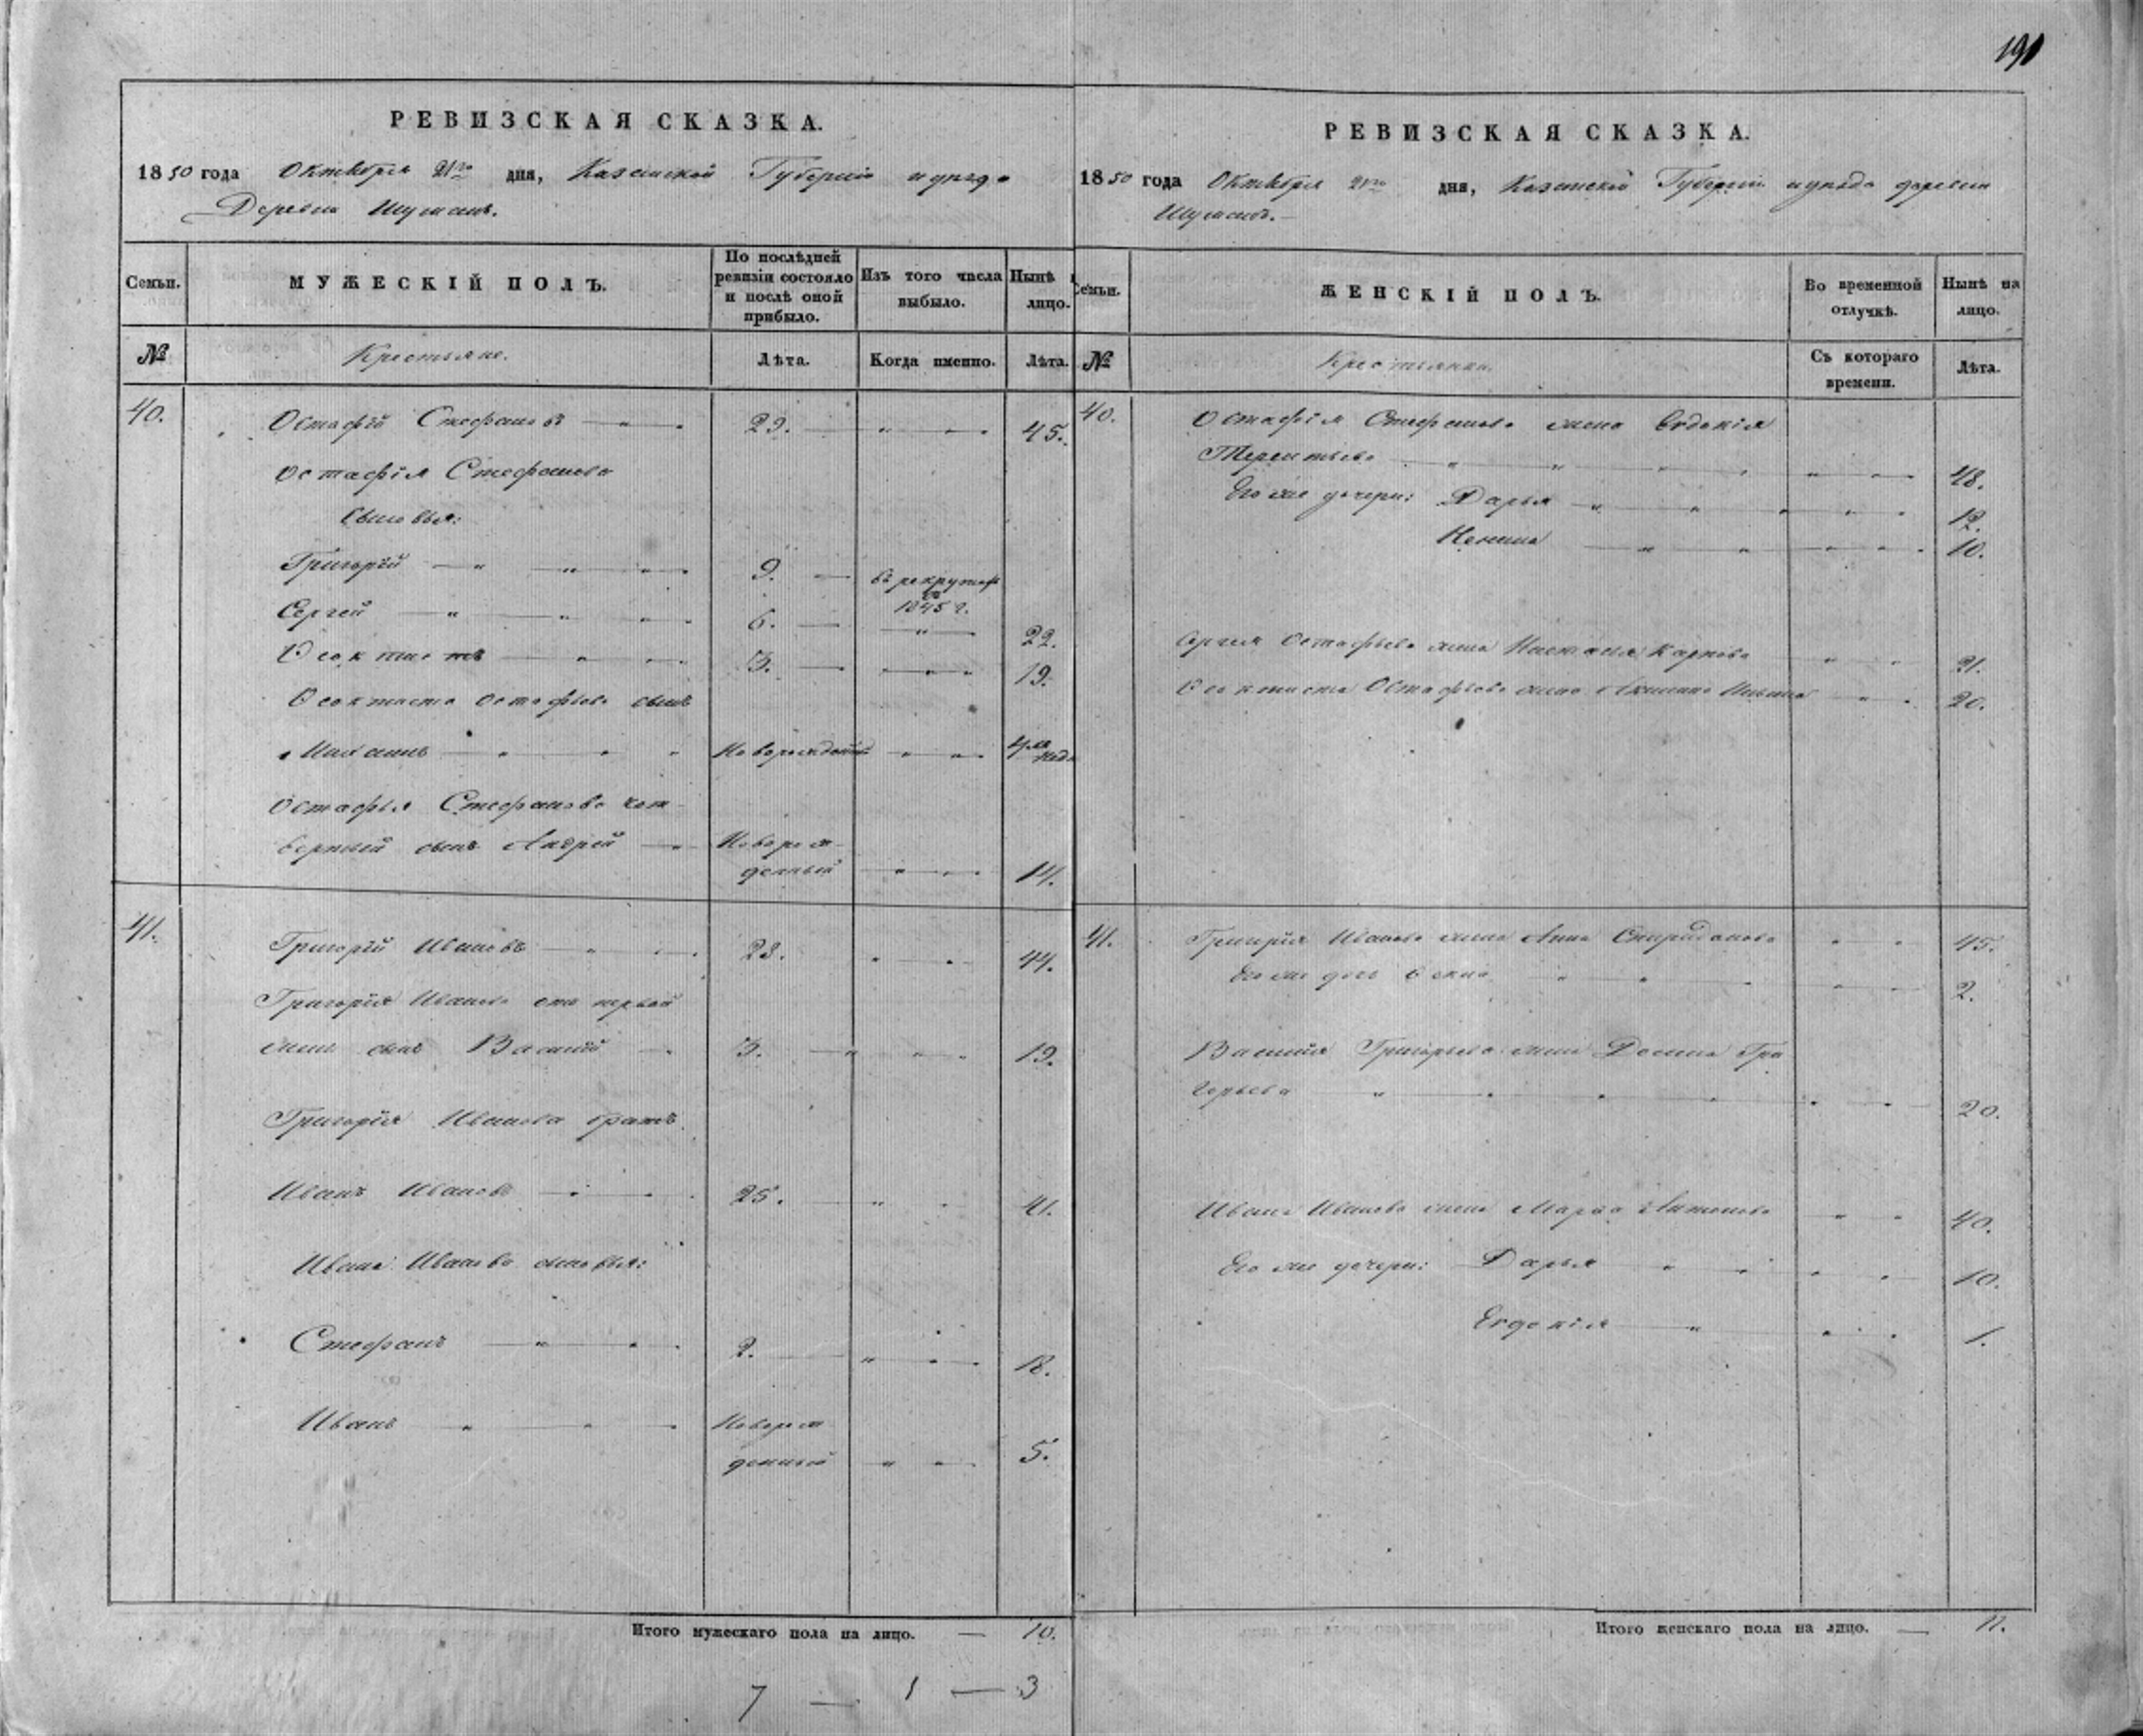 191
РЕВИЗСКАЯ СКАЗКА.
1850 года Октября 21го дня, Казанской Губернiи и уезда
Деревни Шумана.
Семьи. МУЖЕСКIЙ ПОЛЪ. По послѣдней ревизiи состояло и послѣ оной прибыло. Изъ того числа выбыло. Нынѣ лицо.
№ Крестьяне. Лѣта. Когда именно. Лѣта.
40. Остафiй Стефановъ 29. 45.
Остафiя Стефанова
сыновья:
Григорiй 9. въ рекруты
въ 1845 г.
Сергей 6. 22.
Феоктистъ 3. 19.
Феоктиста Остафьева сынъ
новорожденный
Остафья Стефанова чет-
вертый сынъ Андрей Новорож-
денный 14.
41. Григорiй Ивановъ 28. 44.
Григорiя Иванова отъ первой
жены сынъ Василiй 3. 19.
Григорiя Иванова братъ
Иванъ Ивановъ 25. 41.
Ивана Иванова сыновья:
Стефанъ 2. 18.
Иванъ Новорож
денный 5.
Итого мужескаго пола на лицо. 10.
7 — 1 — 3
РЕВИЗСКАЯ СКАЗКА.
1850 года Октября 21го дня, Казанской Губернiи и уезда деревни
Семьи. ЖЕНСКIЙ ПОЛЪ. Во временной отлучкѣ. Нынѣ на лицо.
№ Крестьянки. Съ котораго времени. Лѣта.
40. Остафiя Стефанова жена Евдокiя
Терентьева 48.
Его же дочери: Дарья 12.
10.
Сергея Остафьева жена Карпова 21.
Феоктиста Остафьева жена 20.
41. Григорiя Иванова жена Анна Спиридонова 45.
Его же дочь 2.
Василiя Григорьева жена Гри
горьева 20.
Ивана Иванова жена Марья Антонова 40.
Его же дочери: Дарья 10.
Евдокiя 1.
Итого женскаго пола на лицо. 11.